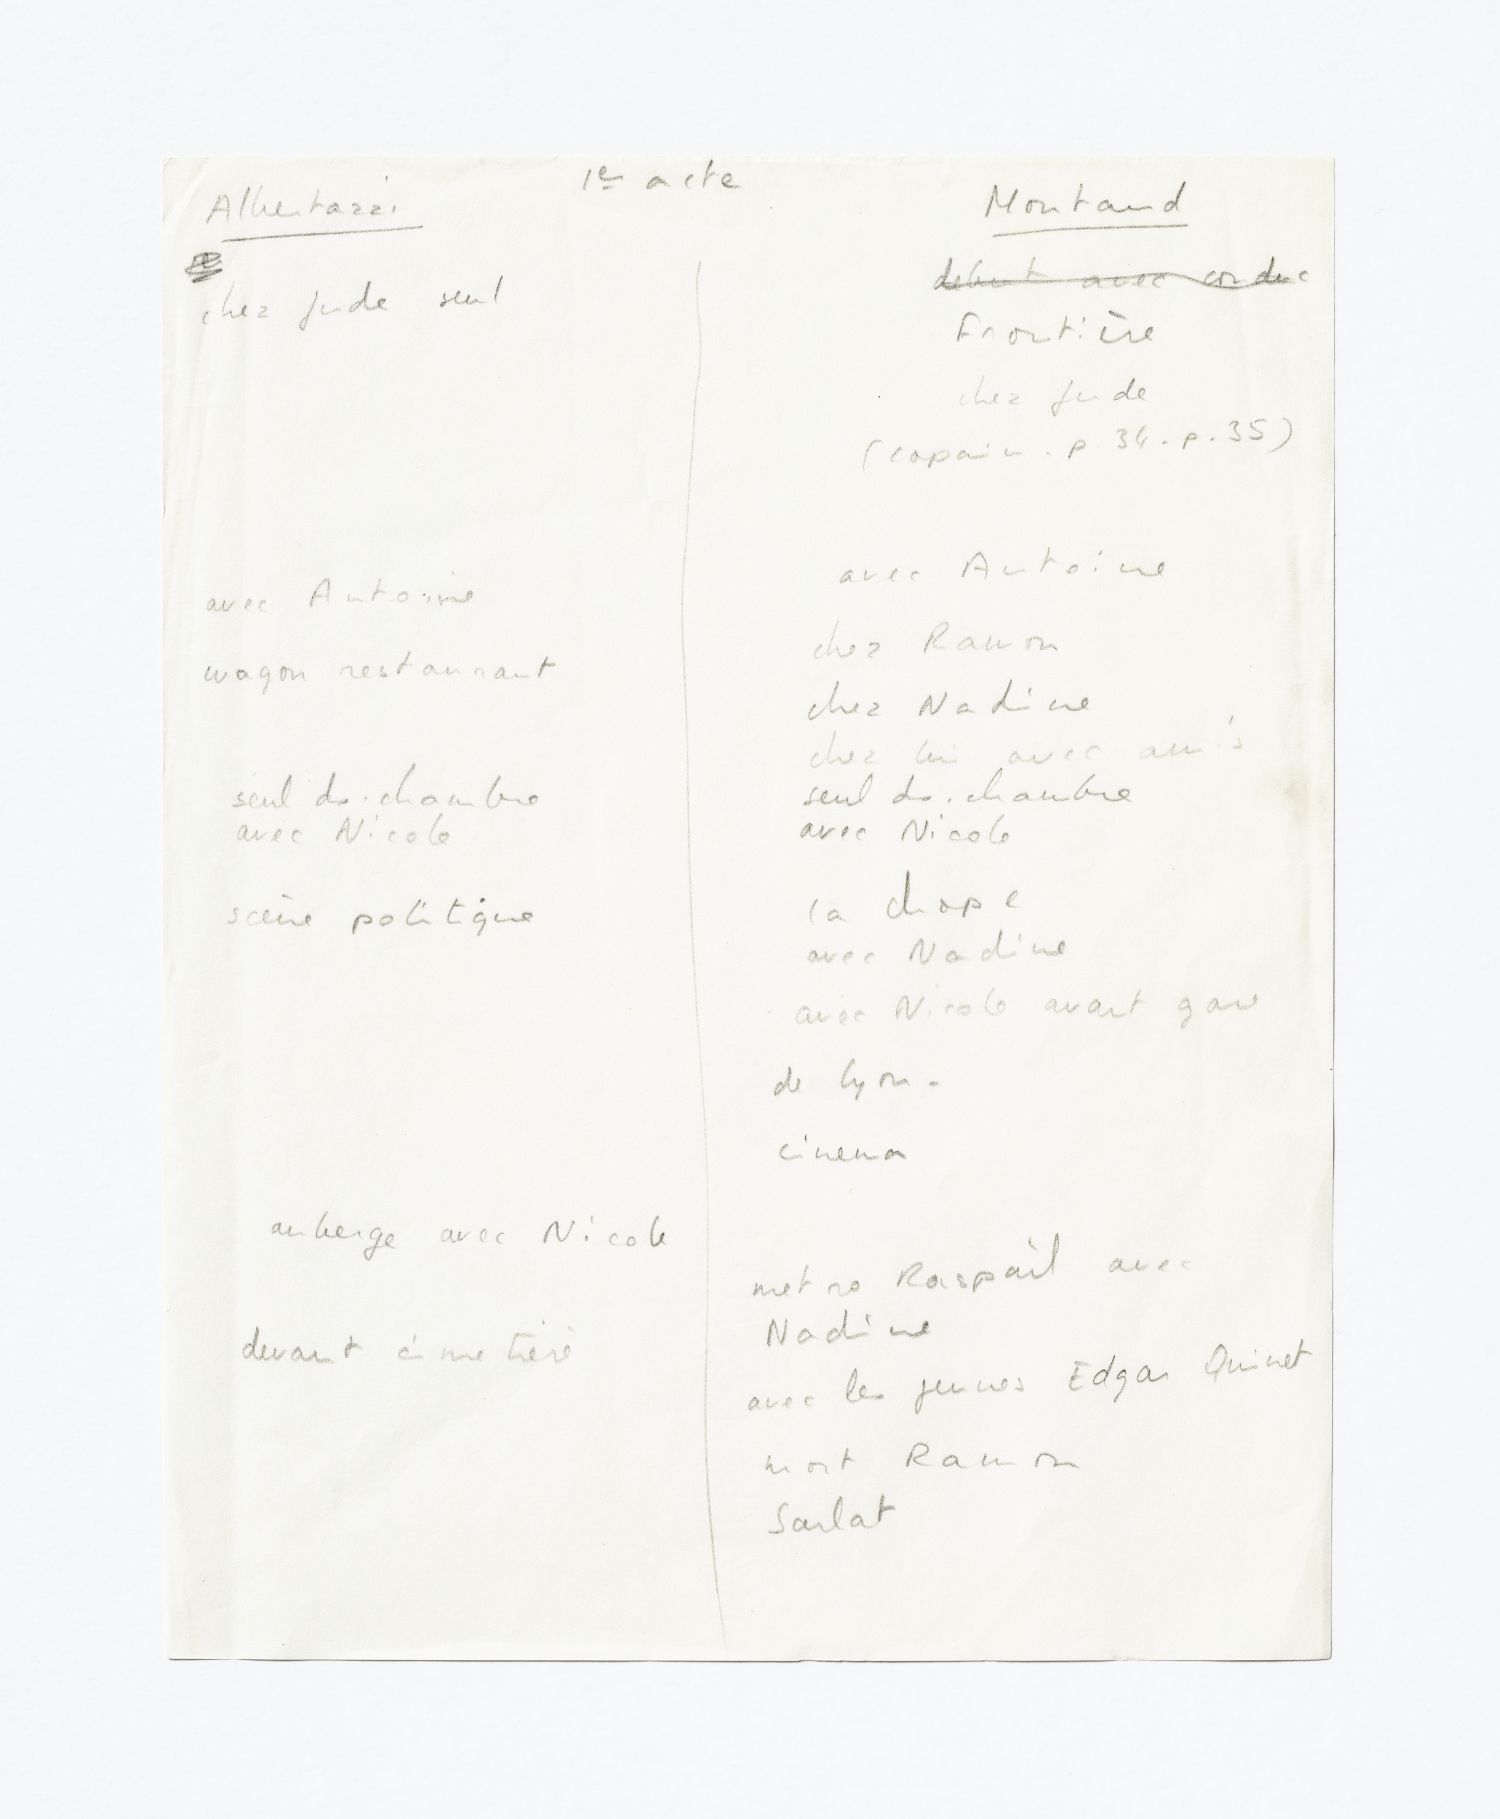 1er acte
Albertazzi
chez Jude seul
avec Antoine
wagon restaurant
seul ds. chambre
avec Nicole
scène politique
auberge avec Nicole
devant cimetière
Montand
début avec conduc
Frontière
chez Jude
(copain . p. 34 . p. 35)
avec Antoine
chez Ramon
chez Nadine
chez lui avec amis
seul ds. chambre
avec Nicole
la chape
avec Nadine
avec Nicole avant gare
de lyon.
cinema
metro Raspail avec
Nadine
avec les jeunes Edgar Quinet
mort Ramon
Sarlat